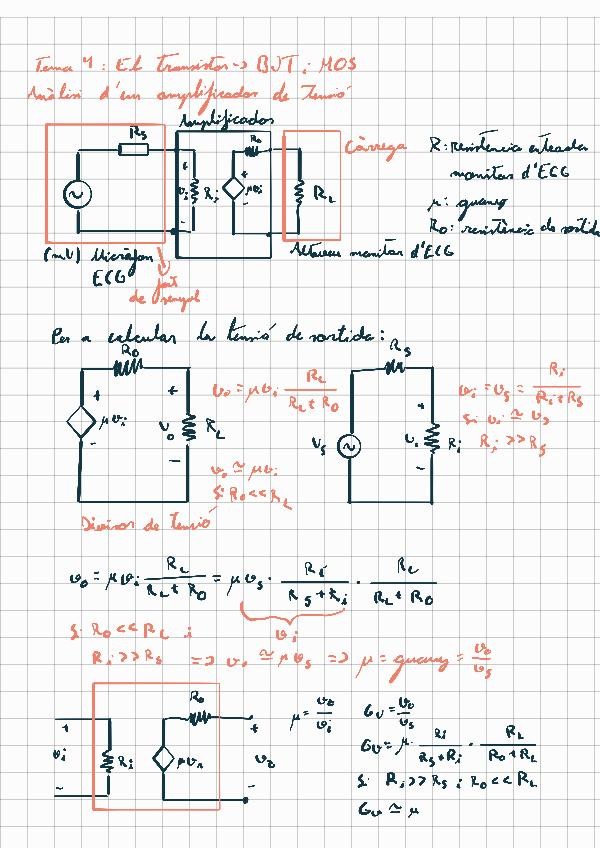 Tema 4: El transistor -> BJT i MOS
Anàlisi d'un amplificador de Tensió
Amplificador
Rs
Ro
vi Ri μvi
RL
Càrrega
R: resistència entrada
monitor d'ECG
μ: guany
Ro: resistència de sortida
(mV) Micròfon
ECG
font
de senyal
Altaveu monitor d'ECG
Per a calcular la tensió de sortida:
Ro
μvi
Vo RL
vo = μvi RL / (RL + Ro)
vo ≃ μvi
si Ro << RL
Divisor de tensió
Rs
Vs
Vi Ri
vi = vs = Ri / (Ri + Rs)
si vi ≃ vs
Ri >> Rs
vo = μvi RL / (RL + Ro) = μvs · Ri / (Rs + Ri) · RL / (RL + Ro)
vi
si Ro << RL i
Ri >> Rs => vo ≃ μvs => μ = guany = vo / vs
vi Ri
Ro
vo
μ = vo / vi
Gv = vo / vs
Gv = μ · Ri / (Rs + Ri) · RL / (Ro + RL)
si Ri >> Rs i Ro << RL
Gv ≃ μ